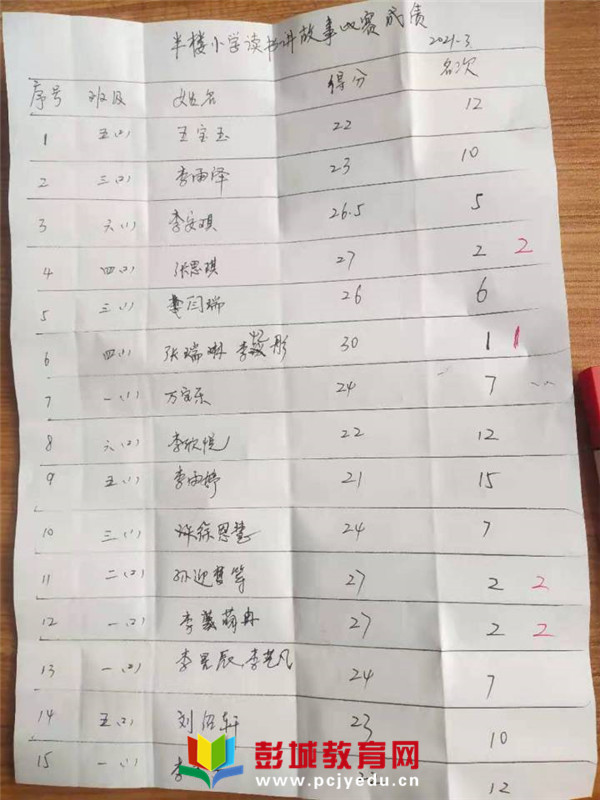 半楼小学读书讲故事比赛成绩
2021-3
序号 班级 姓名 得分 名次
1 五(2) 王宝玉 22 12
2 三(2) 李雨泽 23 10
3 六(1) 李安琪 26.5 5
4 四(2) 张思琪 27 2 2
5 三(1) 闫瑞 26 6
6 四(1) 张瑞琳 李 彤 30 1 1
7 一(1) 万宝乐 24 7
8 六(2) 李欣悦 22 12
9 五(1) 李雨婷 21 15
10 三(1) 徐恩慧 24 7
11 二(2) 孙迎 27 2 2
12 一(2) 李 萌冉 27 2 2
13 一(2) 李昱辰 李艺凡 24 7
14 五(2) 刘 轩 23 10
15 一(1) 李 12
彭城教育网
www.pcjyedu.cn